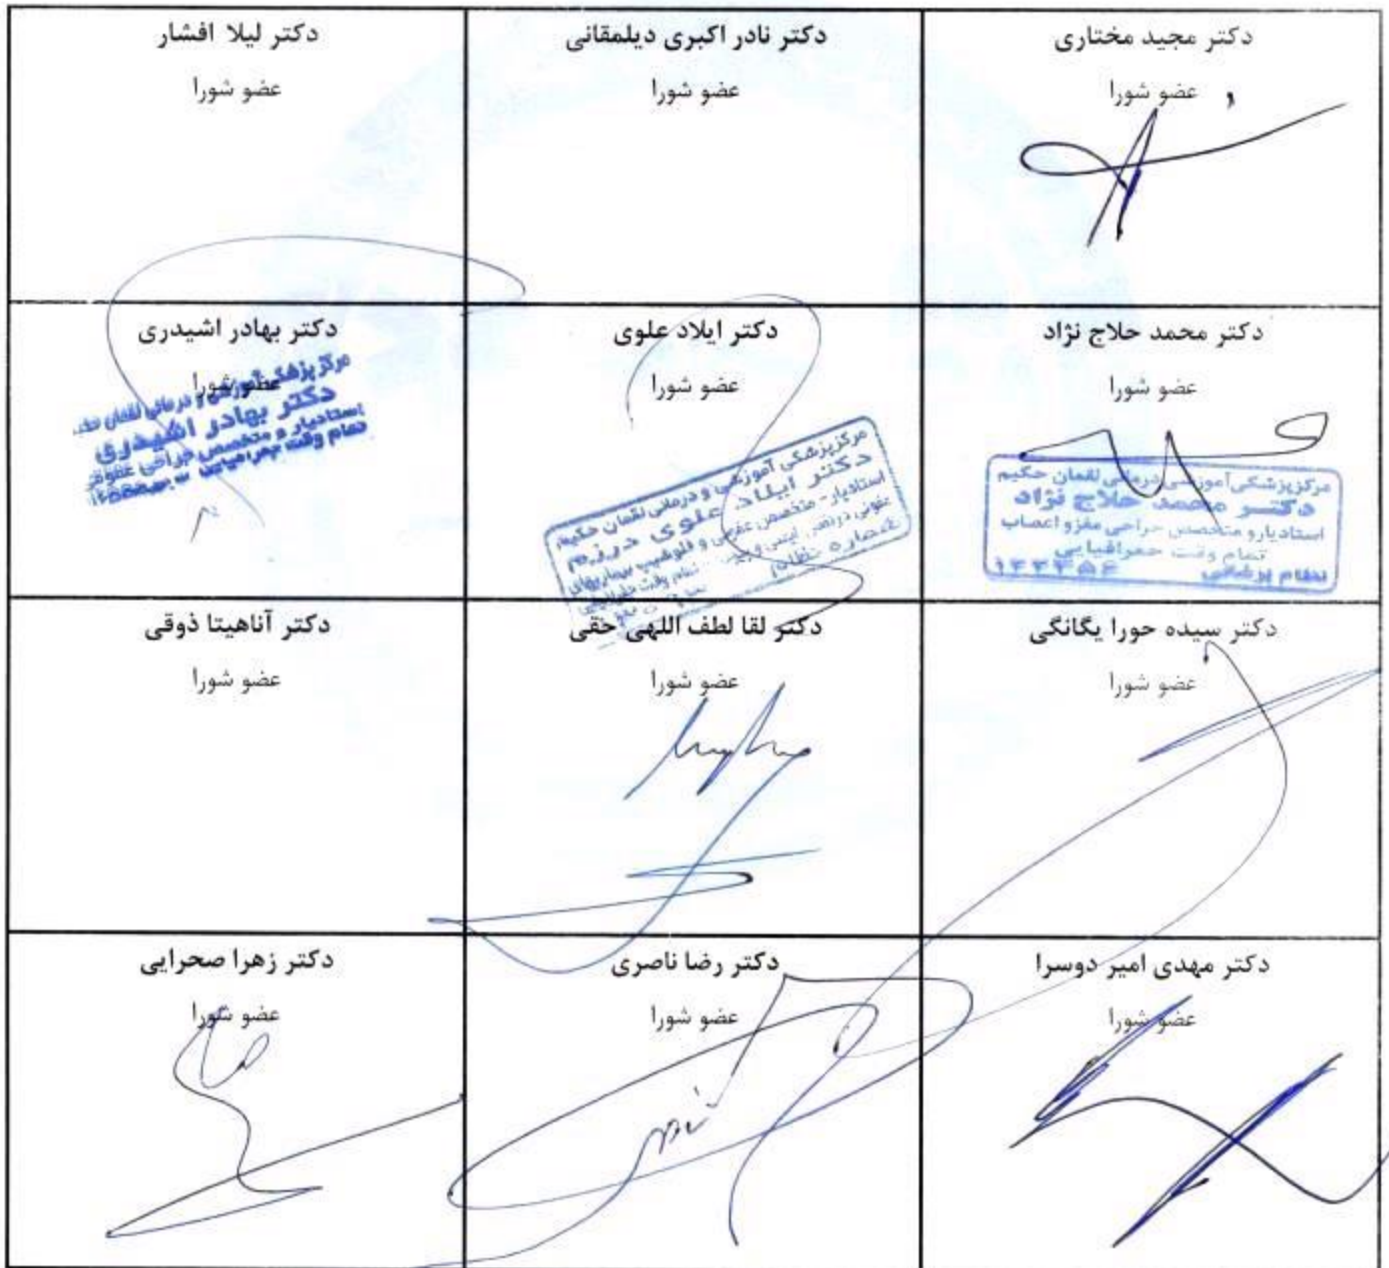 دکتر مجید مختاری
عضو شورا
دکتر نادر اکبری دیلمقانی
عضو شورا
دکتر لیلا افشار
عضو شورا
دکتر محمد حلاج نژاد
عضو شورا
مرکز پزشکی آموزشی درمانی لقمان حکیم
دکتر محمد حلاج نژاد
استادیار و متخصص جراحی مغز و اعصاب
تمام وقت جغرافیایی
نظام پزشکی
دکتر ایلاد علوی
عضو شورا
مرکز پزشکی آموزشی و درمانی لقمان حکیم
دکتر ایلاد علوی درزم
استادیار - متخصص عفونی و فلوشیپ بیماریهای
عفونی در نقص ایمنی
تمام وقت جغرافیایی
دکتر بهادر اشیدری
عضو شورا
مرکز پزشکی آموزشی و درمانی لقمان
دکتر بهادر اشیدری
استادیار و متخصص جراحی عمومی
تمام وقت جغرافیایی
دکتر سیده حورا یگانگی
عضو شورا
دکتر لقا لطف اللهی حقی
عضو شورا
دکتر آناهیتا ذوقی
عضو شورا
دکتر مهدی امیر دوسرا
عضو شورا
دکتر رضا ناصری
عضو شورا
دکتر زهرا صحرایی
عضو شورا